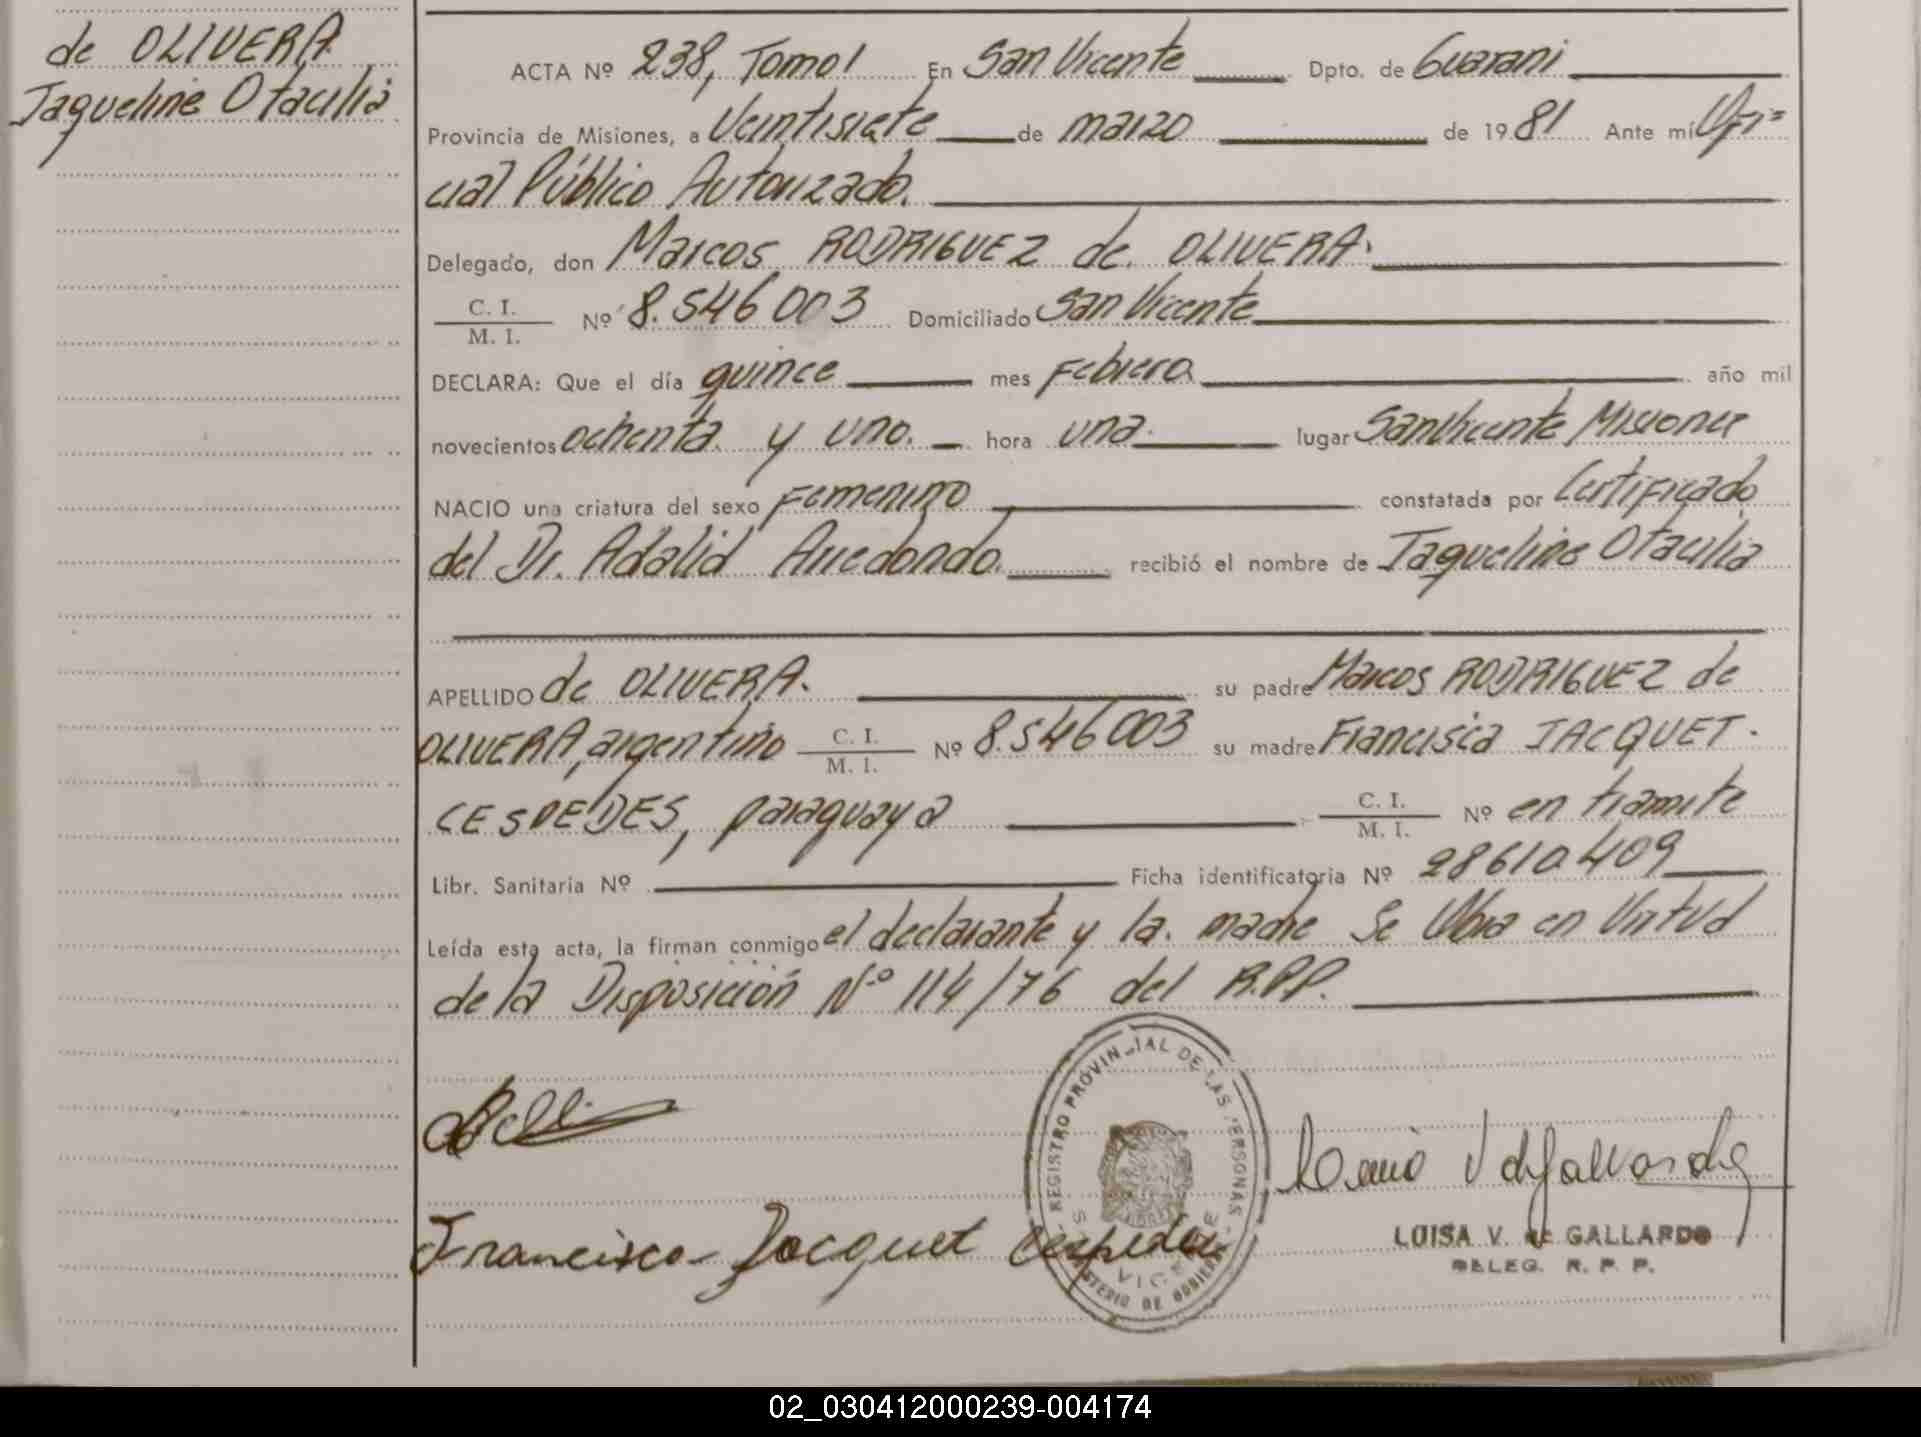 de OLIVERA
Jaqueline Otacilia
ACTA Nº 238, Tomo I En San Vicente Dpto. de Guarani
Provincia de Misiones, a Veintisiete de marzo de 1981 Ante mí Ofi=
cial Público Autorizado.
Delegado, don Marcos RODRIGUEZ de OLIVERA.
C. I.
M. I. Nº 8.546003 Domiciliado San Vicente
DECLARA: Que el día quince mes Febrero año mil
novecientos ochenta y uno. hora una. lugar San Vicente Misiones
NACIO una criatura del sexo Femenino constatada por Certificado
del Dr. Adalid Arredondo. recibió el nombre de Jaqueline Otacilia
APELLIDO de OLIVERA. su padre Marcos RODRIGUEZ de
OLIVERA, argentino C. I. M. I. Nº 8.546003 su madre Francisca JACQUET.
CESPEDES, paraguaya C. I. M. I. Nº en tramite
Libr. Sanitaria Nº Ficha identificatoria Nº 28610409
Leída esta acta, la firman conmigo el declarante y la madre Se labra en Virtud
de la Disposición Nº 114/76 del R.P.P.
REGISTRO PROVINCIAL DE LAS PERSONAS
MINISTERIO DE GOBIERNO
SAN VICENTE
Francisca Jacquet Cespedes
LUISA V. de GALLARDO
DELEG. R. P. P.
02_030412000239-004174